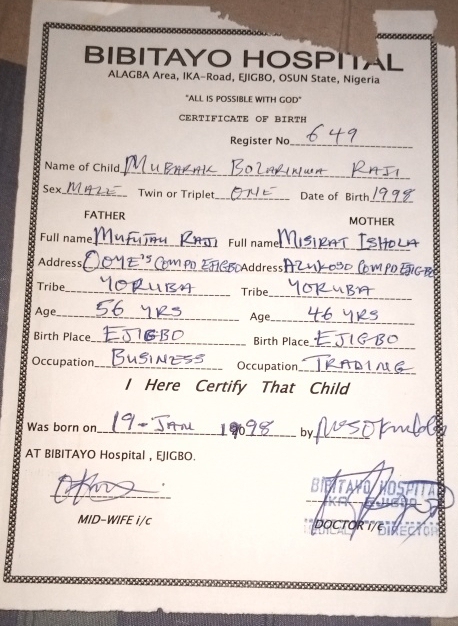 BIBITAYO HOSPITAL
ALAGBA Area, IKA-Road, EJIGBO, OSUN State, Nigeria
"ALL IS POSSIBLE WITH GOD"
CERTIFICATE OF BIRTH
Register No 649
Name of Child MUBARAK BOLARINWA RAJI
Sex MALE Twin or Triplet ONE Date of Birth 1998
FATHER MOTHER
Full name MUFUTAU RAJI Full name MISIRAT ISHOLA
Address OOYE'S COMPD EJIGBO Address COMPD EJIGBO
Tribe YORUBA Tribe YORUBA
Age 56 YRS Age 46 YRS
Birth Place EJIGBO Birth Place EJIGBO
Occupation BUSINESS Occupation TRADING
I Here Certify That Child
Was born on 19-JAN 1998 by
AT BIBITAYO Hospital , EJIGBO.
BIBITAYO HOSPITAL
IKA EJIGBO
MID-WIFE i/c DOCTOR i/c
MEDICAL DIRECTOR